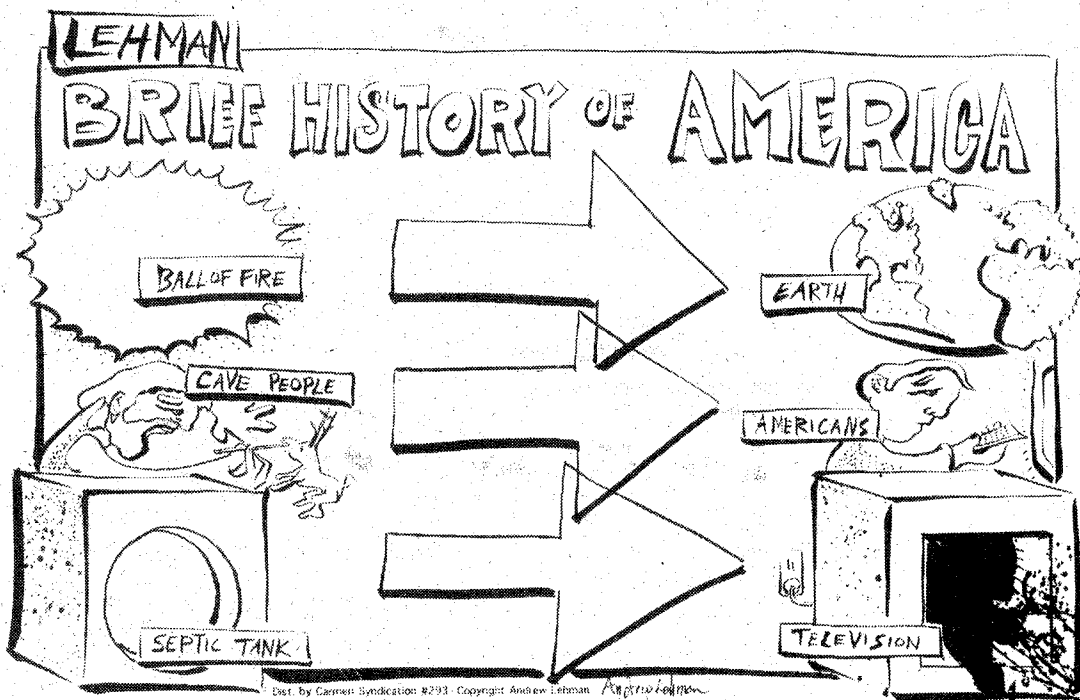 LEHMAN
BRIEF HISTORY OF AMERICA
BALL OF FIRE
EARTH
CAVE PEOPLE
AMERICANS
SEPTIC TANK
TELEVISION
Dist. by Carmen Syndication #293 · Copyright Andrew Lehman
Andrew Lehman